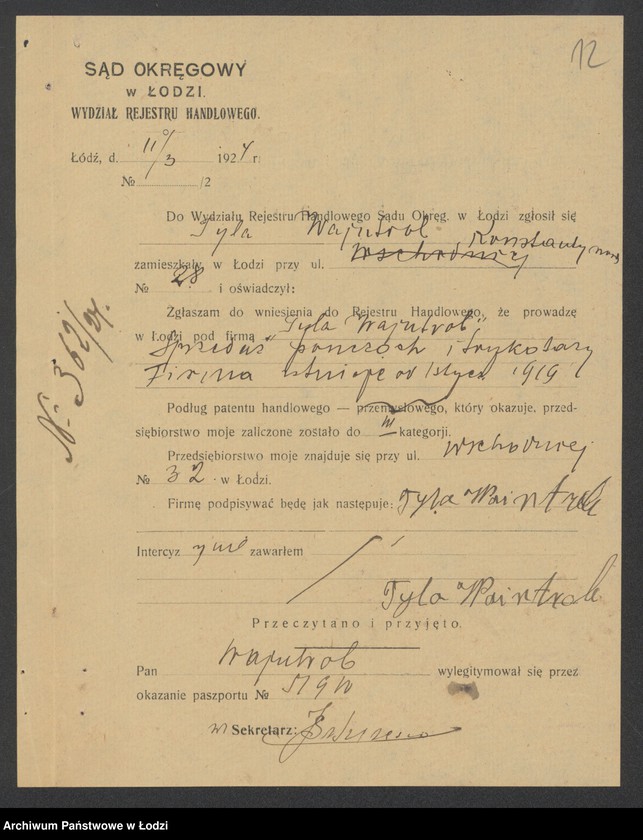 12
SĄD OKRĘGOWY
W ŁODZI.
WYDZIAŁ REJESTRU HANDLOWEGO.
Łódź, d. 11/3 1924 r.
№ /2
Do Wydziału Rejestru Handlowego Sądu Okręg. w Łodzi zgłosił się
Tyla Wajntrob
zamieszkały w Łodzi przy ul. Wschodniej Konstantynows
№ 28 i oświadczył:
Zgłaszam do wniesienia do Rejestru Handlowego, że prowadzę
w Łodzi pod firmą "Tyla Wajntrob"
Sprzedaż pończoch i trykotaży
Firma istnieje od 1 stycz. 1919
Podług patentu handlowego — przemysłowego, który okazuje, przed-
siębiorstwo moje zaliczone zostało do III kategorji.
Przedsiębiorstwo moje znajduje się przy ul. Wschodniej
№ 32 w Łodzi.
Firmę podpisywać będę jak następuje: Tyla Waintrob
Intercyz y nie zawarłem
Tyla Waintrob
Przeczytano i przyjęto.
Pan Wajntrob wylegitymował się przez
okazanie paszportu №
W Sekretarz:
N. 362/24.
Archiwum Państwowe w Łodzi